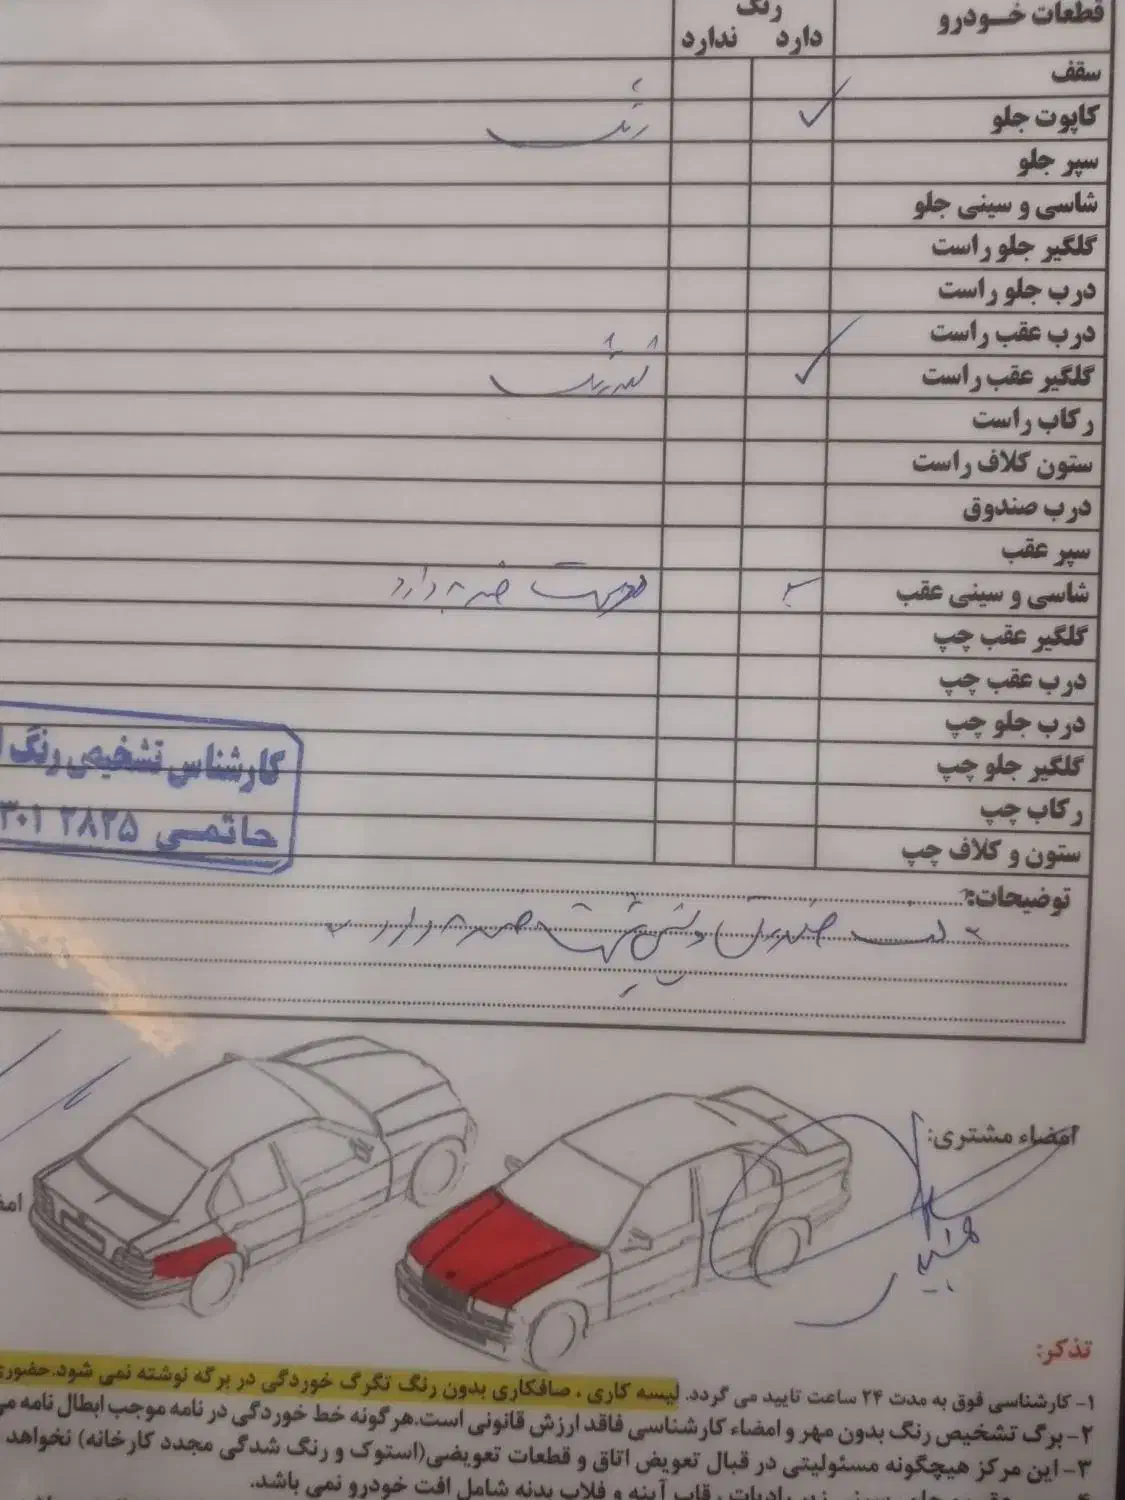 قطعات خـودرو رنگ
دارد ندارد
سقف
کاپوت جلو رنگ
سپر جلو
شاسی و سینی جلو
گلگیر جلو راست
درب جلو راست
درب عقب راست
گلگیر عقب راست
رکاب راست
ستون کلاف راست
درب صندوق
سپر عقب
شاسی و سینی عقب ضربه دارد
گلگیر عقب چپ
درب عقب چپ
درب جلو چپ
گلگیر جلو چپ
رکاب چپ
ستون و کلاف چپ
کارشناس تشخیص رنگ
حاتمـی ۳۰۱ ۲۸۲۵
توضیحات:
لب صندوق پشت ضربه دارد
امضاء مشتری:
تذکر:
۱- کارشناسی فوق به مدت ۲۴ ساعت تایید می گردد. لیسه کاری ، صافکاری بدون رنگ تگرگ خوردگی در برگه نوشته نمی شود.حضوری
۲- برگ تشخیص رنگ بدون مهر و امضاء کارشناسی فاقد ارزش قانونی است.هرگونه خط خوردگی در نامه موجب ابطال نامه
۳- این مرکز هیچگونه مسئولیتی در قبال تعویض اتاق و قطعات تعویضی(استوک و رنگ شدگی مجدد کارخانه) نخواهد
قاب آینه و قلاب بدنه شامل افت خودرو نمی باشد.